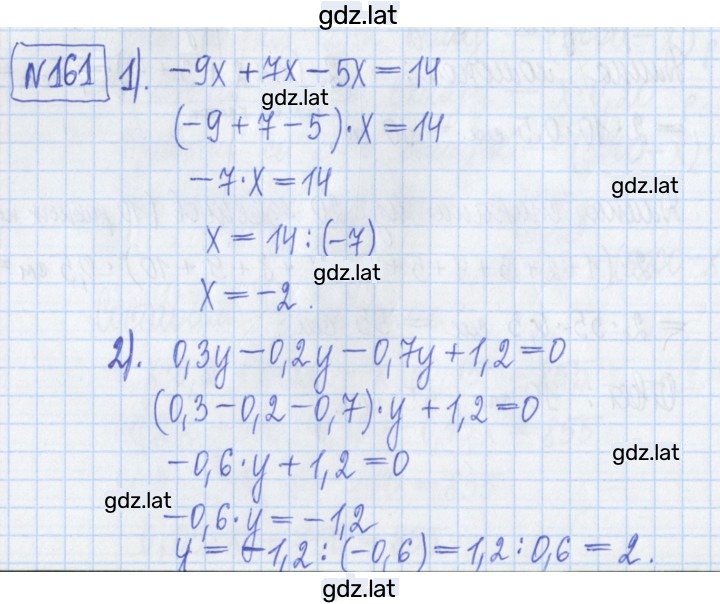 gdz.lat
№161 1). -9x + 7x - 5x = 14
gdz.lat
(-9 + 7 - 5)·x = 14
-7·x = 14
gdz.lat
x = 14 : (-7)
gdz.lat
x = -2.
2). 0,3y - 0,2y - 0,7y + 1,2 = 0
(0,3 - 0,2 - 0,7)·y + 1,2 = 0
-0,6·y + 1,2 = 0
gdz.lat
gdz.lat
-0,6·y = -1,2
y = -1,2 : (-0,6) = 1,2 : 0,6 = 2.
gdz.lat